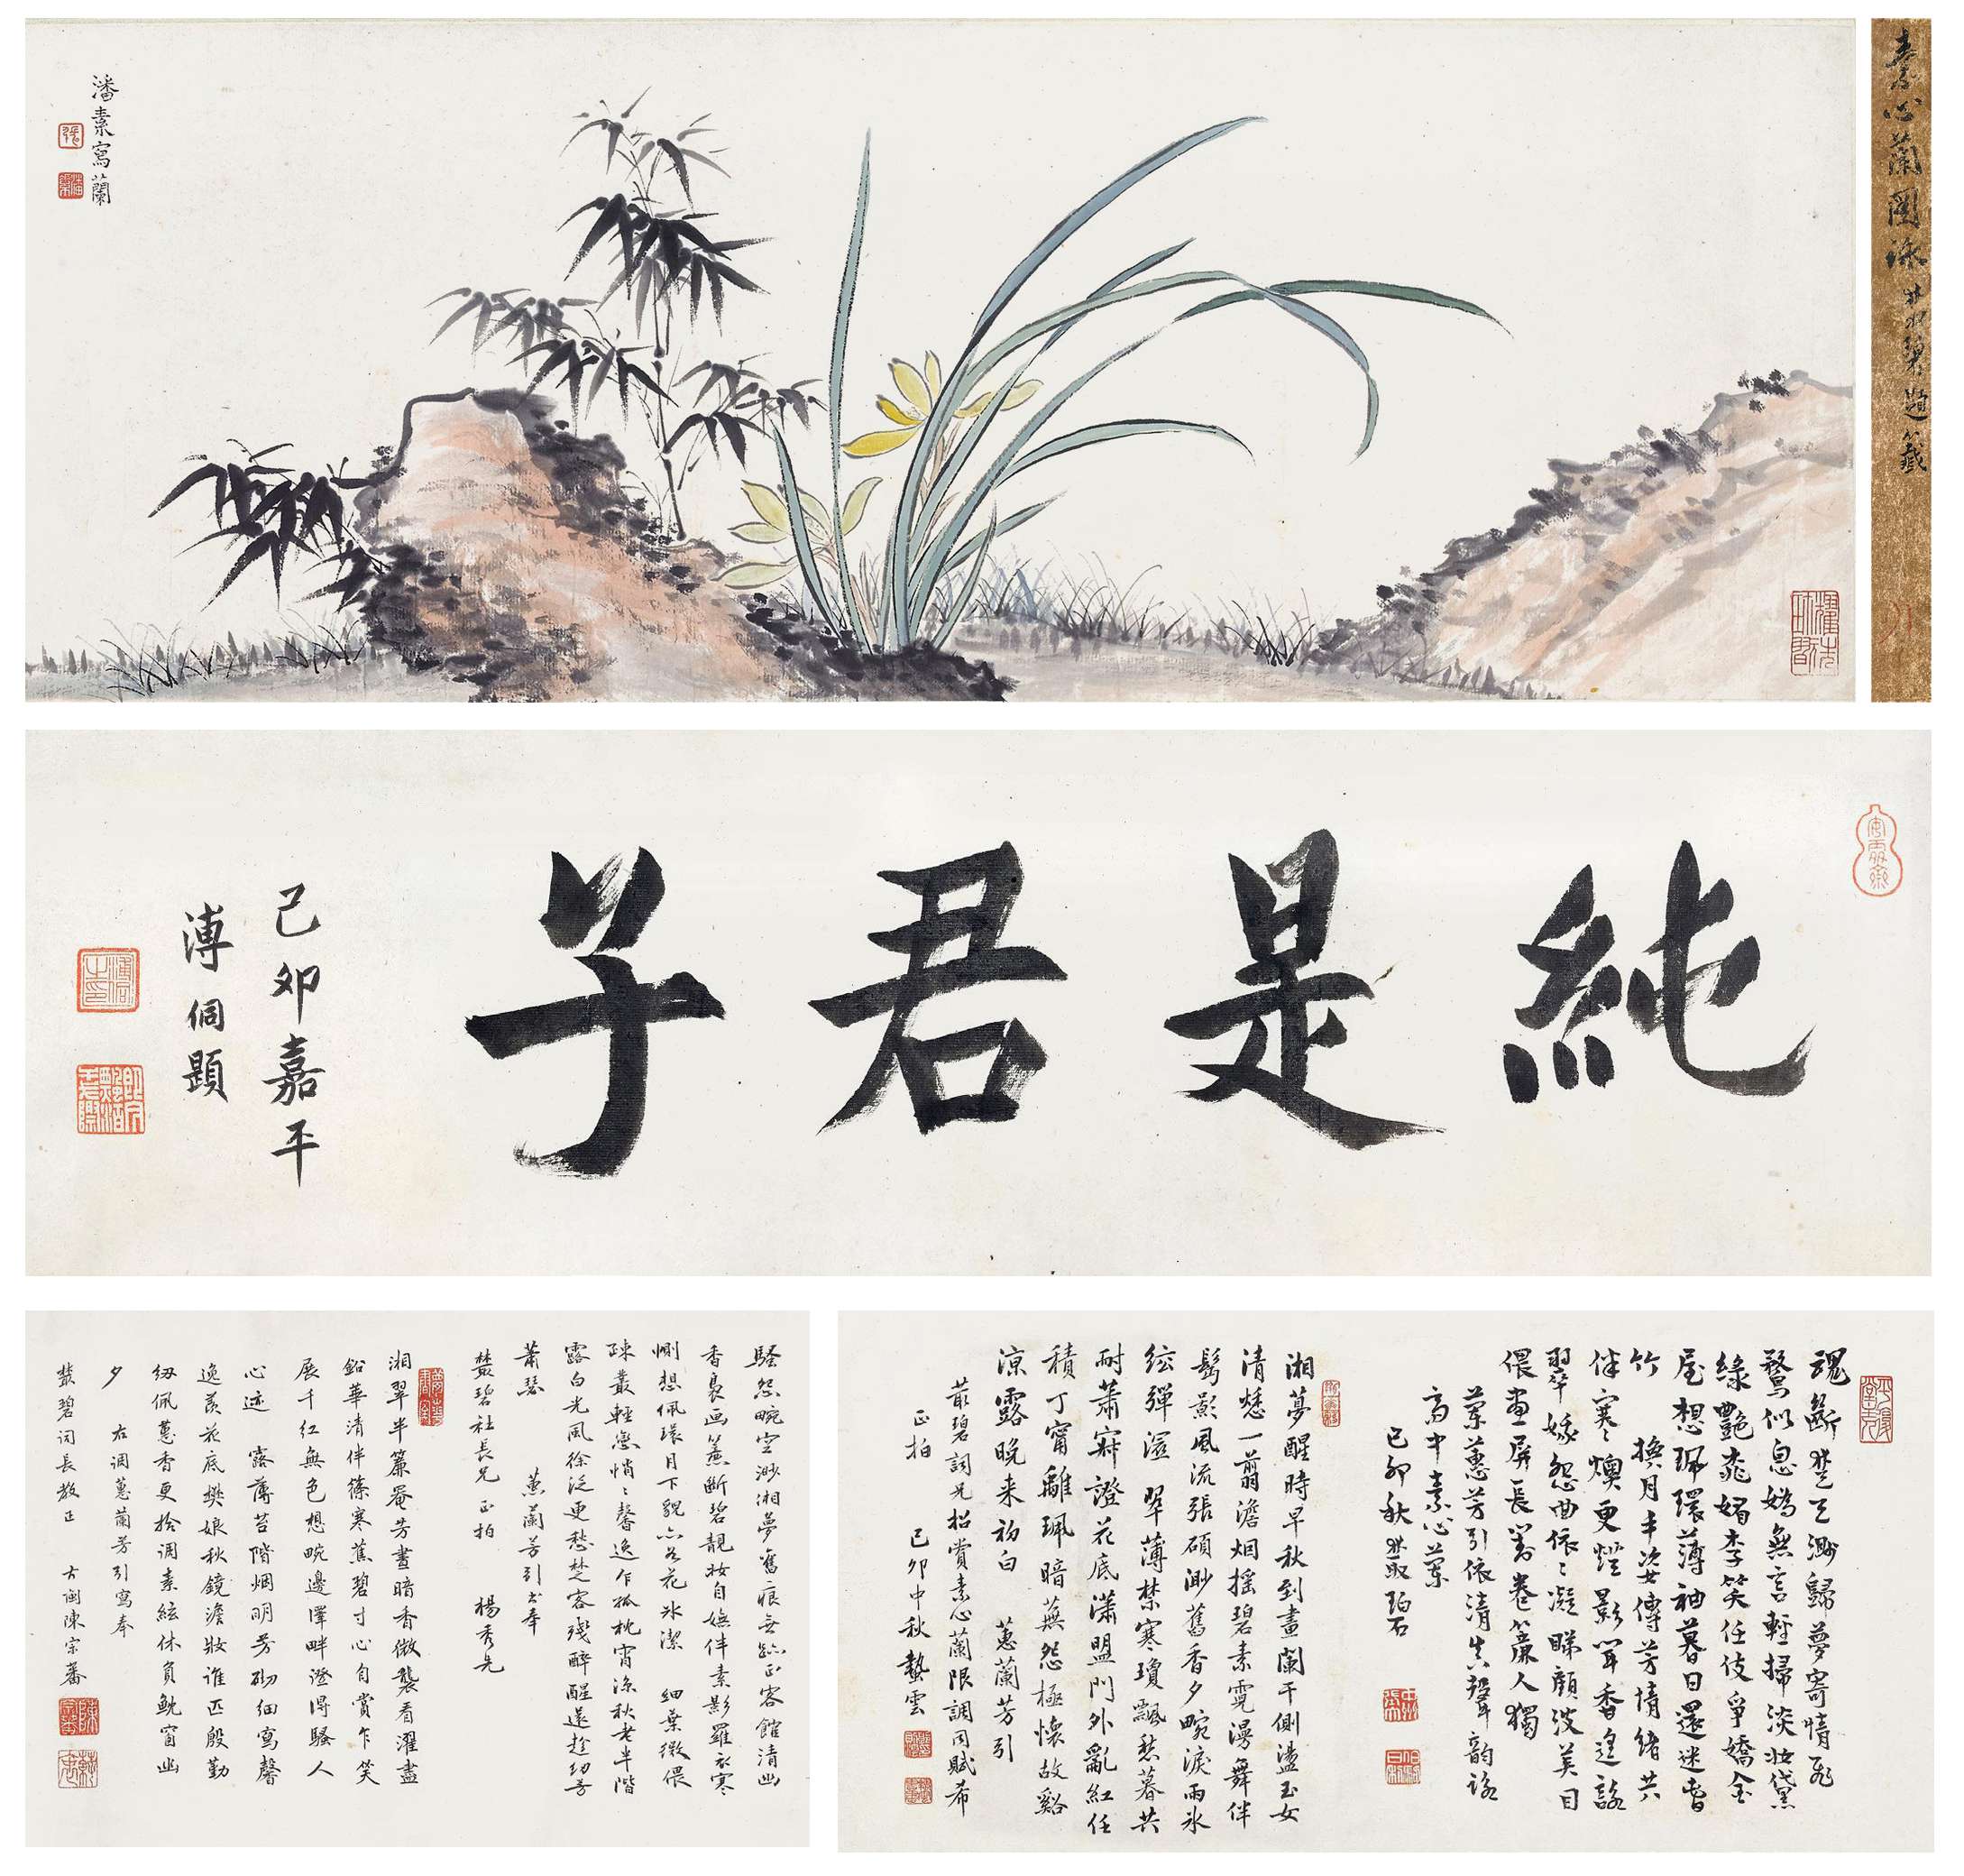 素心蘭圖詠
叢碧題籤
潘素寫蘭
純是君子
己卯嘉平
溥侗題
魂斷楚天渺歸夢寄情飛
鶩似息媯無言輕掃淡妝黛
綠艷桃媚李笑任伎爭嬌金
屋想珮環薄袖暮日還迷
竹 換月丰姿傳芳情緒共
伴寒燠更燈影聞香
翠娥怨曲依依凝睇顧波美目
偎畫屏長對卷簾人獨
蘭蕙芳引依清真聲韵詠
齋中素心蘭
己卯秋叢碧
湘夢醒時早秋到畫闌干側盪玉女
清愁一翦澹烟搖碧素霓漫舞伴
髩影風流張碩渺舊香夕畹淚雨氷
絃彈溼 翠薄禁寒瓊飄愁暮共
耐蕭寂證花底瀟盟門外亂紅任
積丁甯離珮暗蕪怨極懷故谿
涼露晚來初白 蕙蘭芳引
叢碧詞兄招賞素心蘭限調同賦希
正拍 己卯中秋蟄雲
騷怨畹空渺湘夢舊痕無跡正客館清幽
香裛畫簾斷碧靚妝自嫵伴素影羅衣寒
惻想佩環月下貌亦名花氷潔 細葉微偎
疎叢輕戀悄悄馨逸乍孤枕宵涼秋老半階
露白光風徐泛更愁楚客殘醉醒還趁幼芳
蕭瑟 蕙蘭芳引書奉
叢碧社長兄正拍 楊秀先
湘翠半簾罨芳晝暗香微襲看濯盡
鉛華清伴篠寒蕉碧寸心自賞乍笑
展千紅無色想畹邊澤畔澄得騷人
心迹 露薄苔階烟明芳砌細寫馨
逸羨花底樊娘秋鏡澹妝誰匹殷勤
紉佩蕙香更拾調素絃休負鮑窗幽
夕 右調蕙蘭芳引寫奉
叢碧詞長教正 古閩陳宗蕃